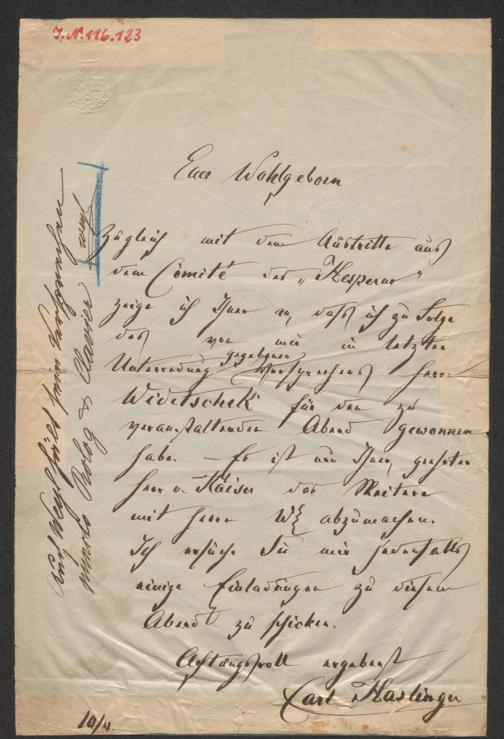 I.N. 116.123
Euer Wohlgeboren
Zugleich mit dem Austritte aus
dem Comité des „Hesperus"
zeige ich Ihnen an, daß ich zu Folge
des von mir in letzter
Unterredung gegebenen Versprechens Herrn
Widetschek für den zu
veranstaltenden Abend gewonnen
habe. – Es ist nun Ihnen, geehrter
Herr v. Kaiser das Weitere
mit Herrn W. abzumachen.
Ich ersuche Sie mir jedenfalls
einige Einladungen zu diesem
Abend zu schicken.
Achtungsvoll ergebenst
Carl Haslinger
10/4.
Auch Weyl hält sein Versprechen
Prolog & Clavier